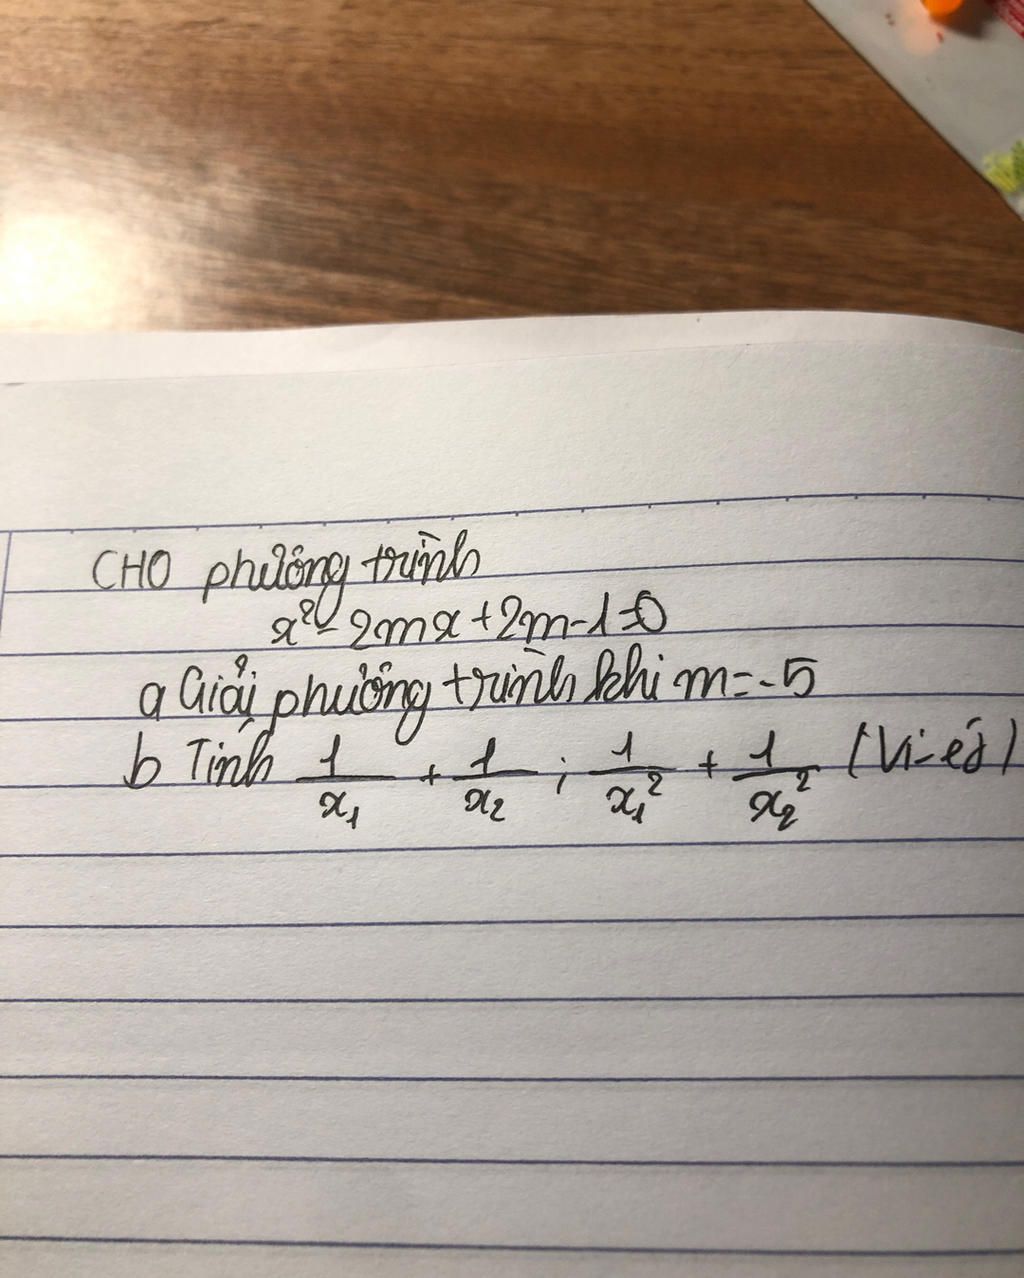 CHO phương trình
x² - 2mx + 2m - 1 = 0
a Giải phương trình khi m = -5
b Tính 1/x₁ + 1/x₂ ; 1/x₁² + 1/x₂² (Vi-ét)